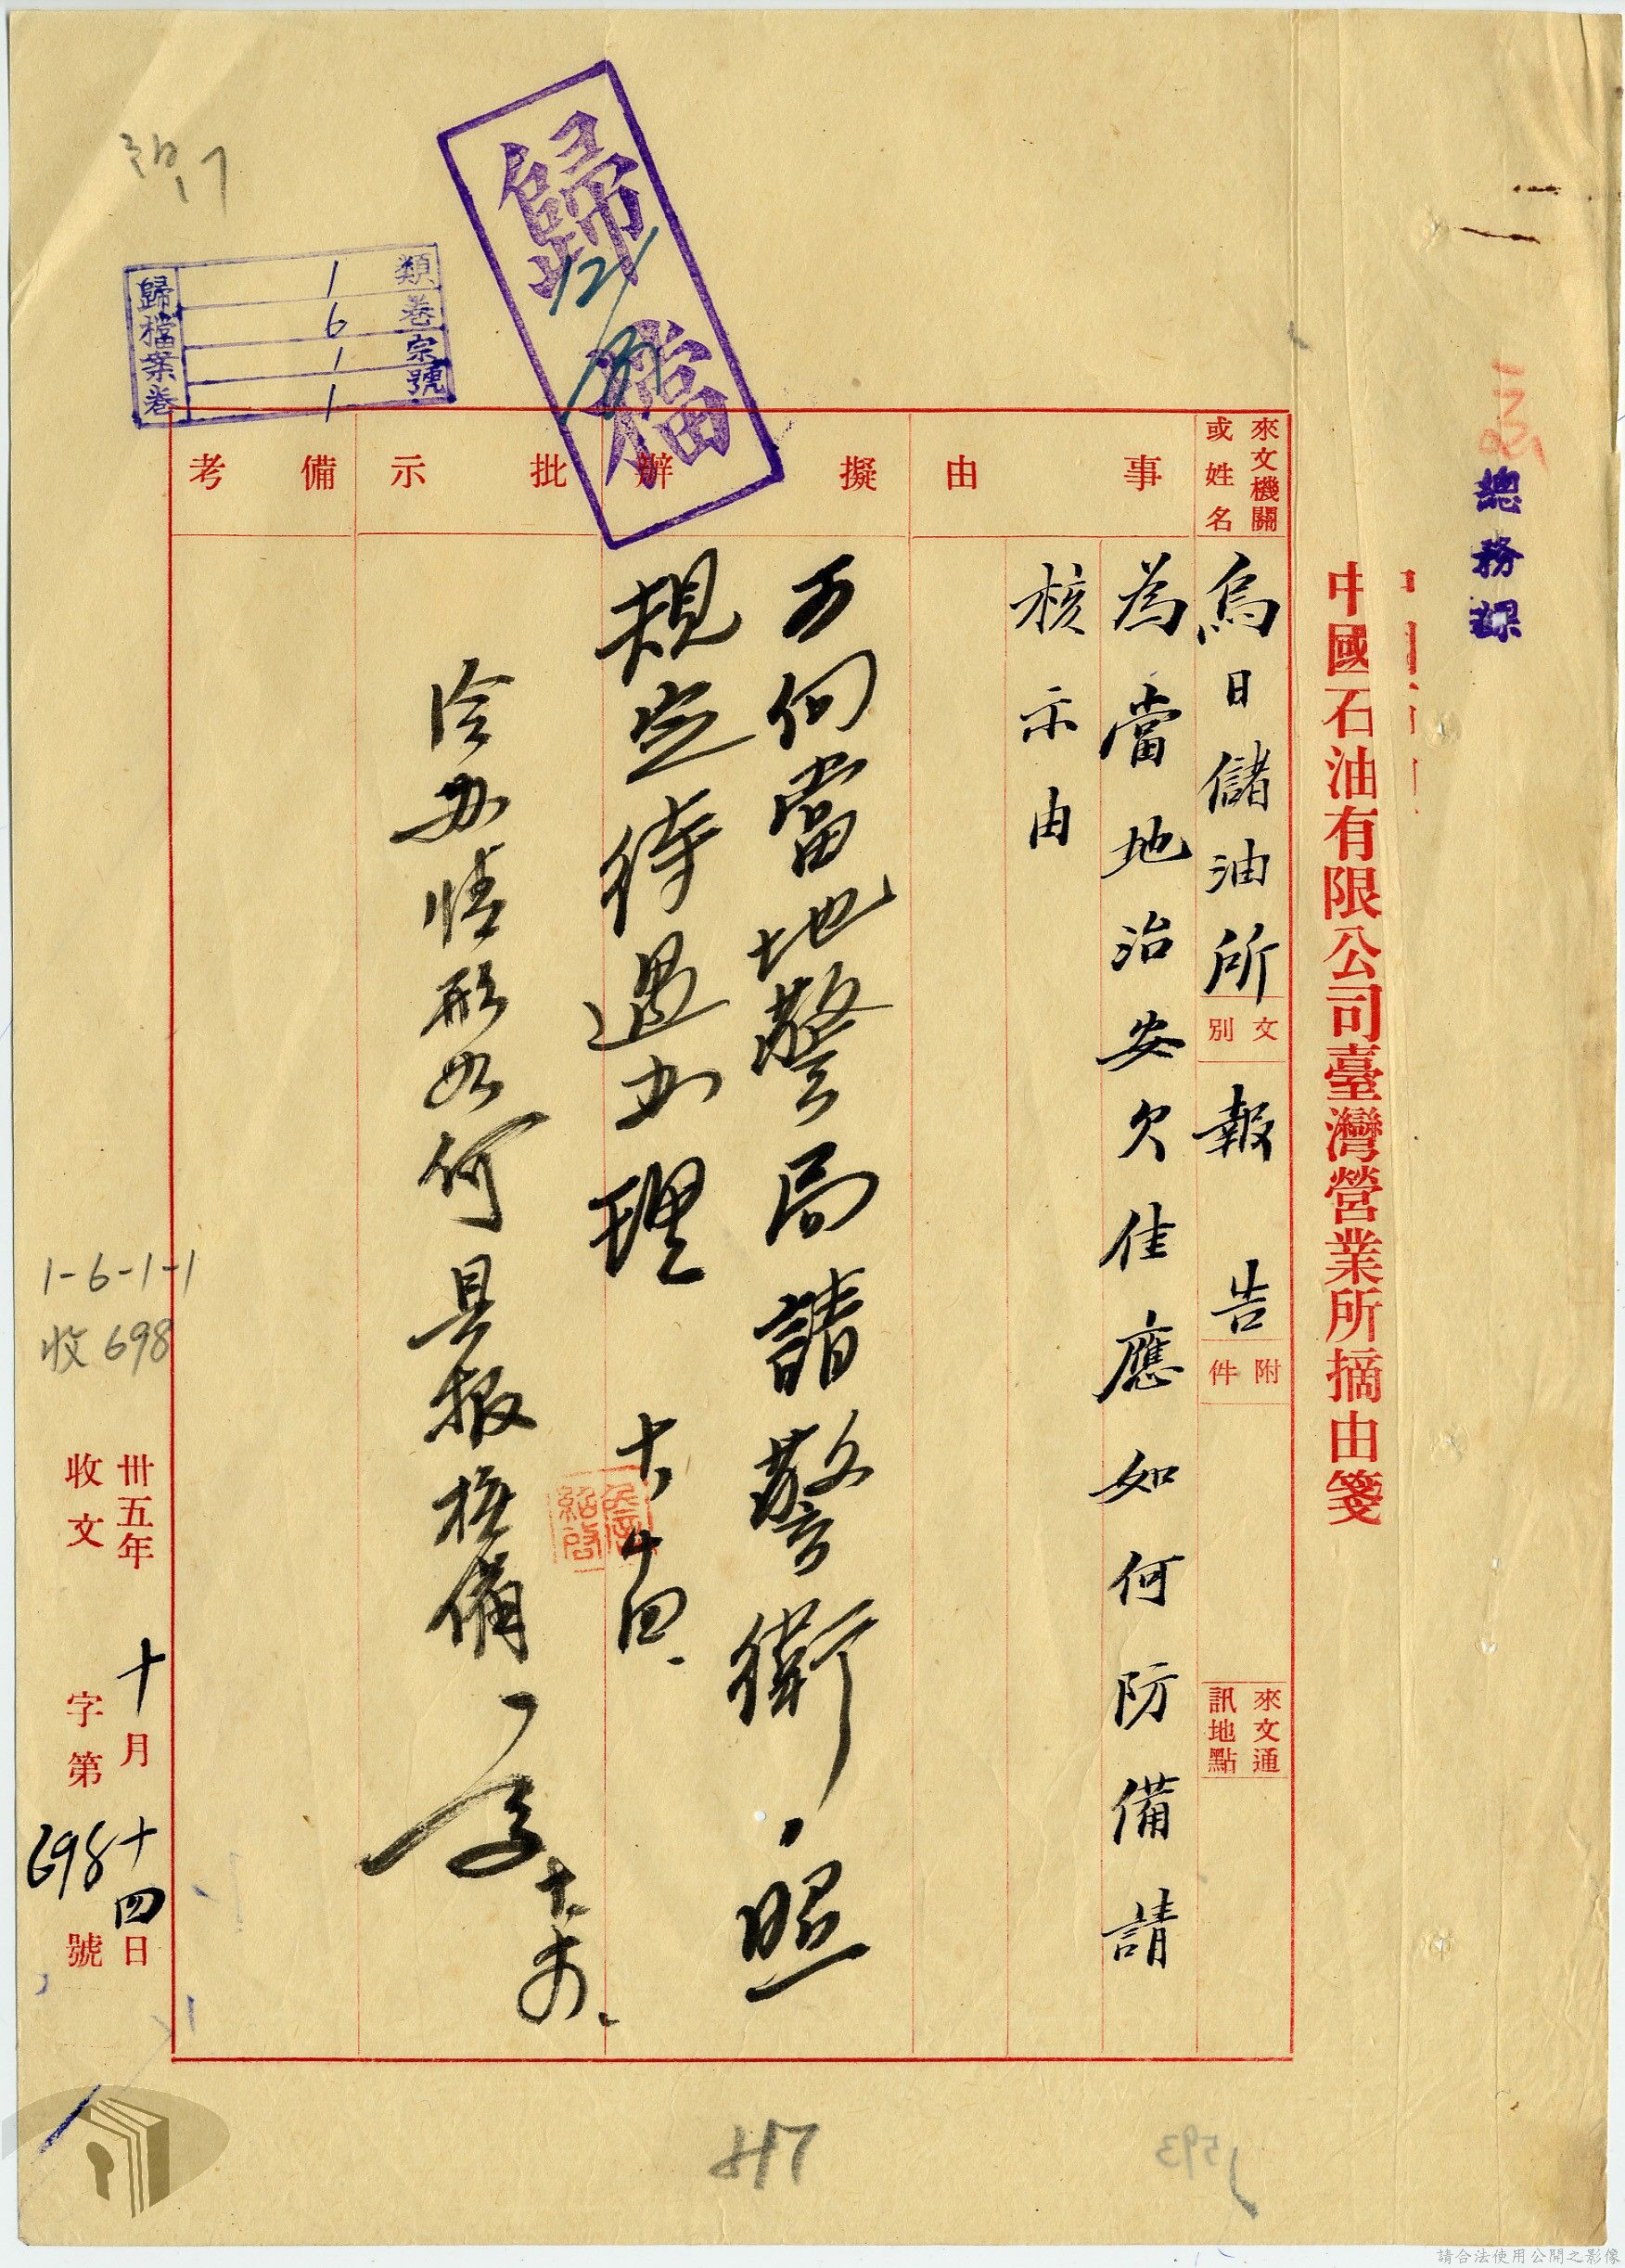 總務課
中國石油有限公司臺灣營業所摘由箋
來文機關
或姓名
烏日儲油所
文別
報告
附件
來文通
訊地點
事由
為當地治安欠佳應如何防備請
核示由
擬辦
可向當地警局請警衛,照
規定待遇办理
十、十四.
批示
洽办情形如何具报核備
備考
歸檔
類卷宗號
1
6
1
1
歸檔案卷
1-6-1-1
收698
卅五年十月十四日
收文字第698號
817
1593
請合法使用公開之影像